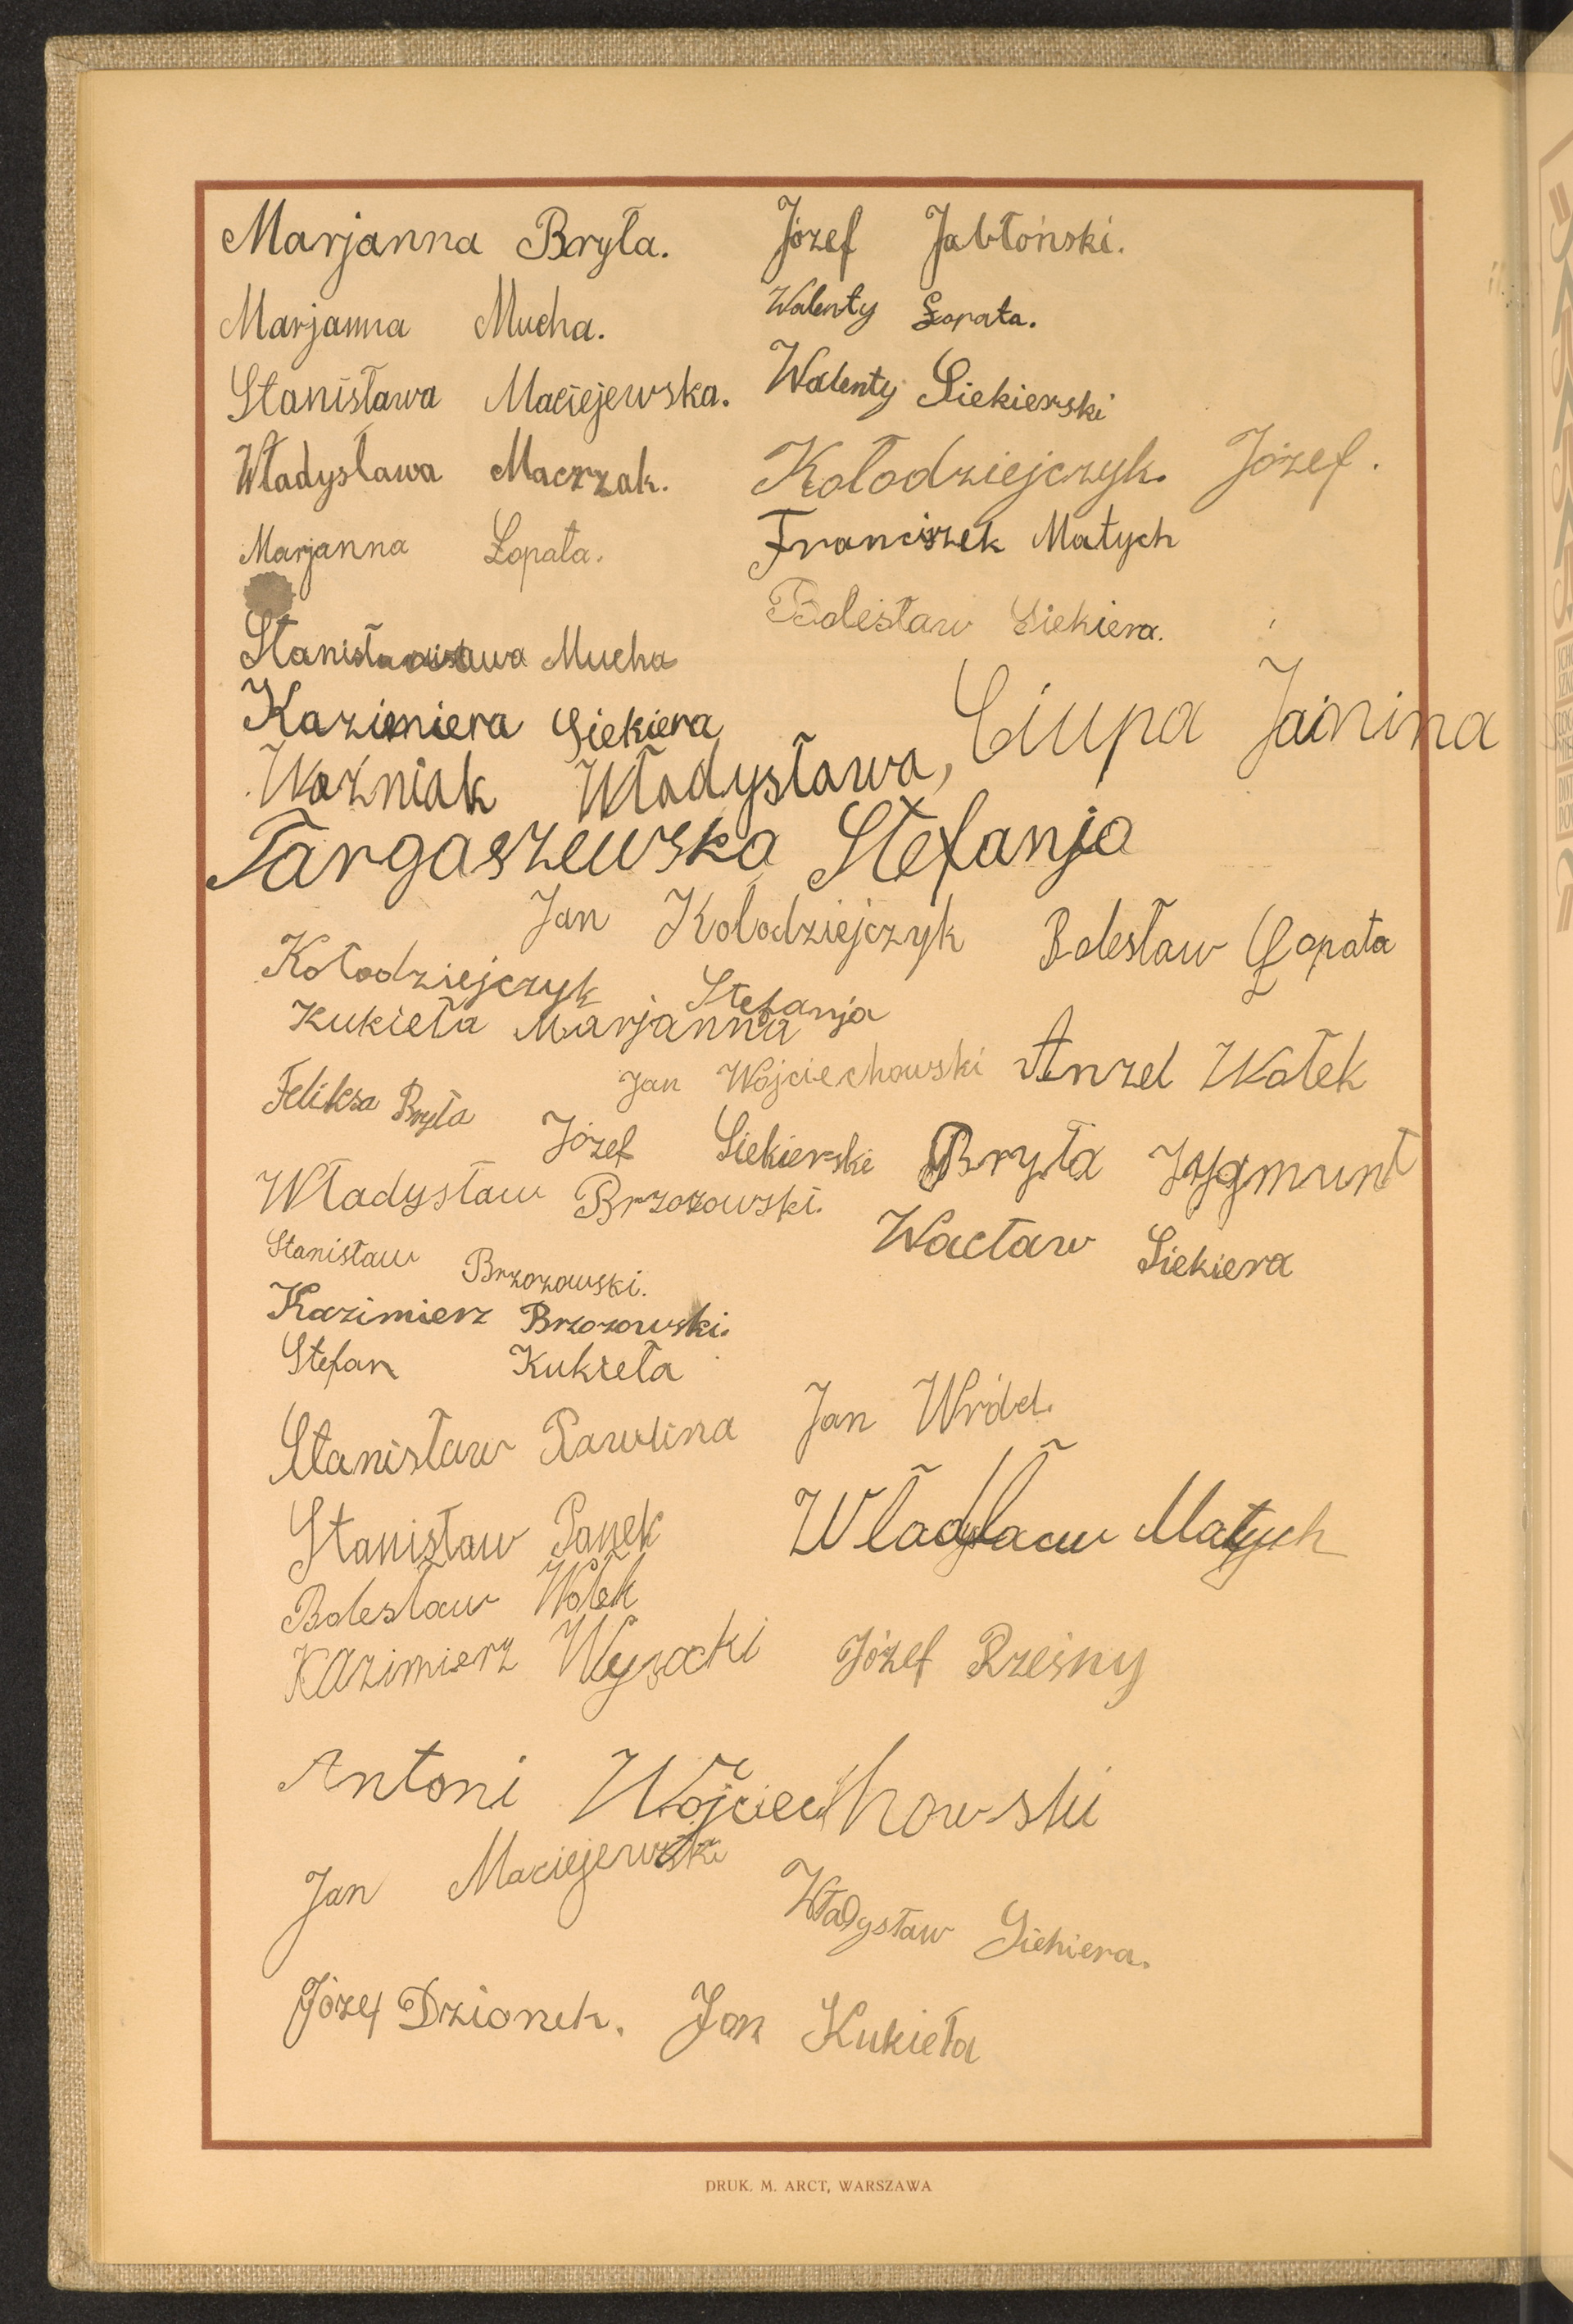 Marjanna Bryła. Józef Jabłoński.
Marjanna Mucha. Walenty Łopata.
Stanisława Maciejewska. Walenty Siekierski
Władysława Maczzak. Kołodziejczyk. Józef.
Marjanna Łopata. Franciszek Małych
Bolesław Siekiera.
Mucha
Kazimiera Siekiera
Ciupa Janina
Woźniak Władysława,
Targaszewska Stefanja
Jan Kołodziejczyk Bolesław Łopata
Kołodziejczyk Stefanja
Kukieła Marjanna
Jan Wojciechowski Anzel Wołek
Feliksa Bryła
Józef Siekierski Bryła Zygmunt
Władysław Brzozowski.
Wacław Siekiera
Stanisław Brzozowski.
Kazimierz Brzozowski.
Stefan Kukieła
Stanisław Rawlina Jan Wróbel.
Stanisław Panek Małych
Bolesław Wołek
Kazimierz Wysocki Józef Rzeżny
Antoni Wojciechowski
Jan Maciejewski
Władysław Siekiera.
Józef Dzionek. Jan Kukieła
DRUK. M. ARCT, WARSZAWA